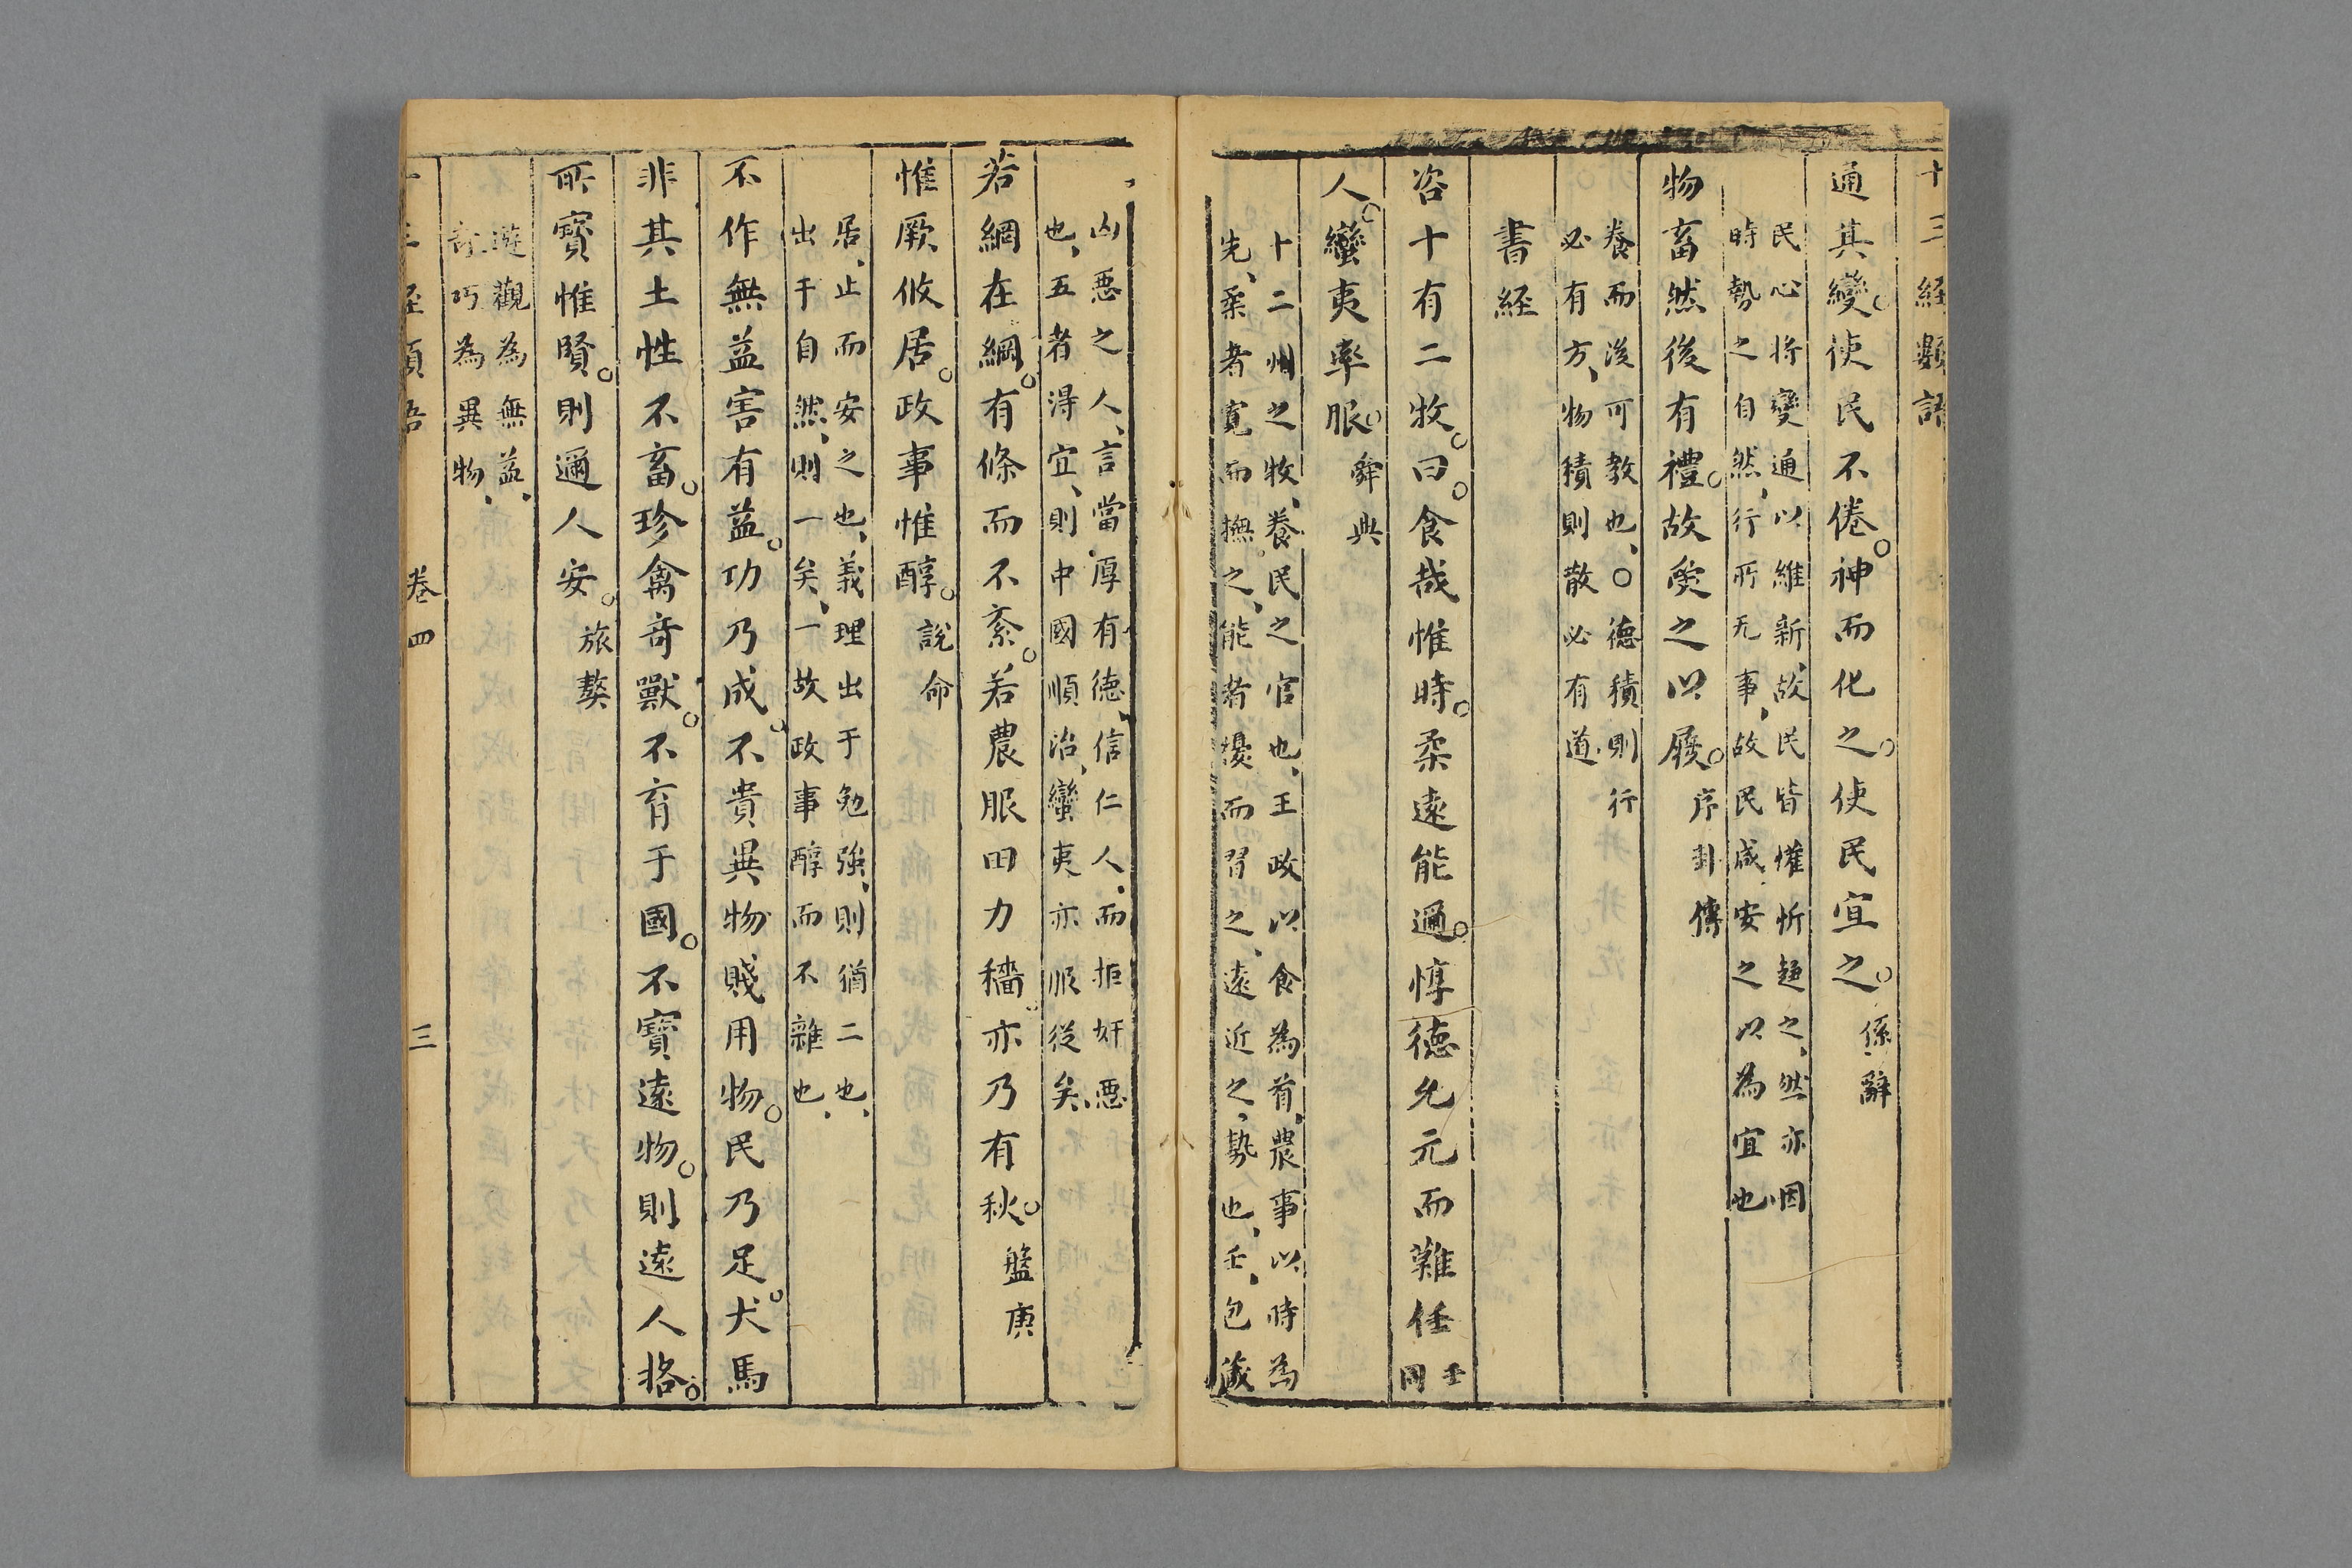 十三経類語
通其變使民不倦神而化之使民宜之係辭
民心將變通以維新故民皆懽忻趍之然亦因
時勢之自然行所无事故民咸安之以為宜也
物畜然後有禮故受之以履序卦傳
養而後可教也○德積則行
必有方物積則散必有道
書経
咨十有二牧曰食哉惟時柔遠能邇惇德允元而難任壬同
人蠻夷率服舜典
十二州之牧養民之官也王政以食為首農事以時為
先柔者寛而撫之能者擾而習之遠近之勢也壬包藏
凶惡之人言當厚有德信仁人而拒奸惡
也五者得宜則中國順治蠻夷亦服從矣
若網在綱有條而不紊若農服田力穡亦乃有秋盤庚
惟厥攸居政事惟醇說命
居止而安之也義理出于勉強則猶二也
出于自然則一矣一故政事醇而不雜也
不作無益害有益功乃成不貴異物賤用物民乃足犬馬
非其土性不畜珍禽奇獸不育于國不寶遠物則遠人格
所寶惟賢則邇人安旅獒
遊觀為無益
奇巧為異物
十三経類語 卷四 三